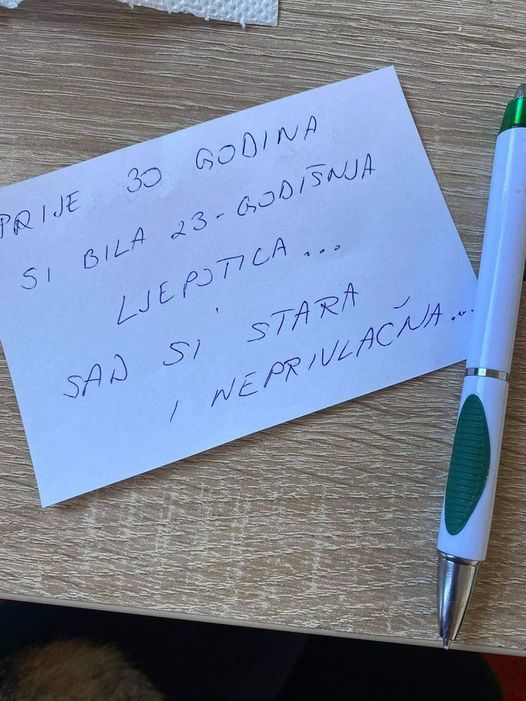 PRIJE 30 GODINA
SI BILA 23-GODIŠNJA
LJEPOTICA...
SAD SI STARA
I NEPRIVLAČNA...